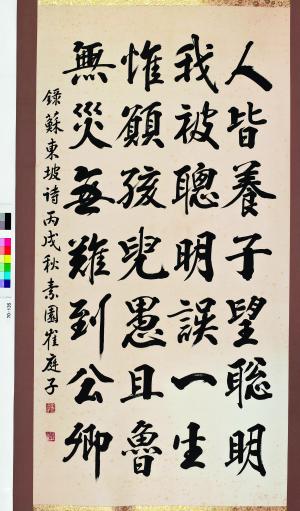 人皆養子望聡明
我被聰明誤一生
惟願孩兒愚且魯
無災無難到公卿
録蘇東坡诗丙戌秋素園崔庭子